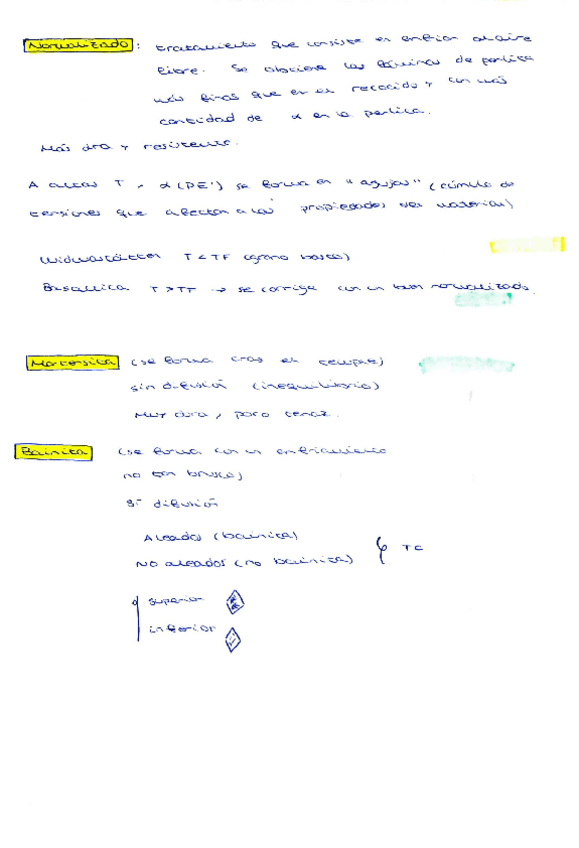 Normalizado : tratamiento que consiste en enfriar al aire
libre. Se obtiene las láminas de perlita
más finas que en el recocido y con más
cantidad de α en la perlita.
Más dura y resistente.
A altas T, α (PE') se forma en "agujas" (cúmulo de
tensiones que afectan a las propiedades del material)
T < TF (grano basto)
T > TF → se corrige con un buen normalizado.
Martensita (se forma tras el temple)
sin difusión (inequilibrio)
Muy dura, poco tenaz.
Bainita (se forma con un enfriamiento
no tan brusco)
Sí difusión
Aleados (bainita)
NO aleados (no bainita)
superior
inferior